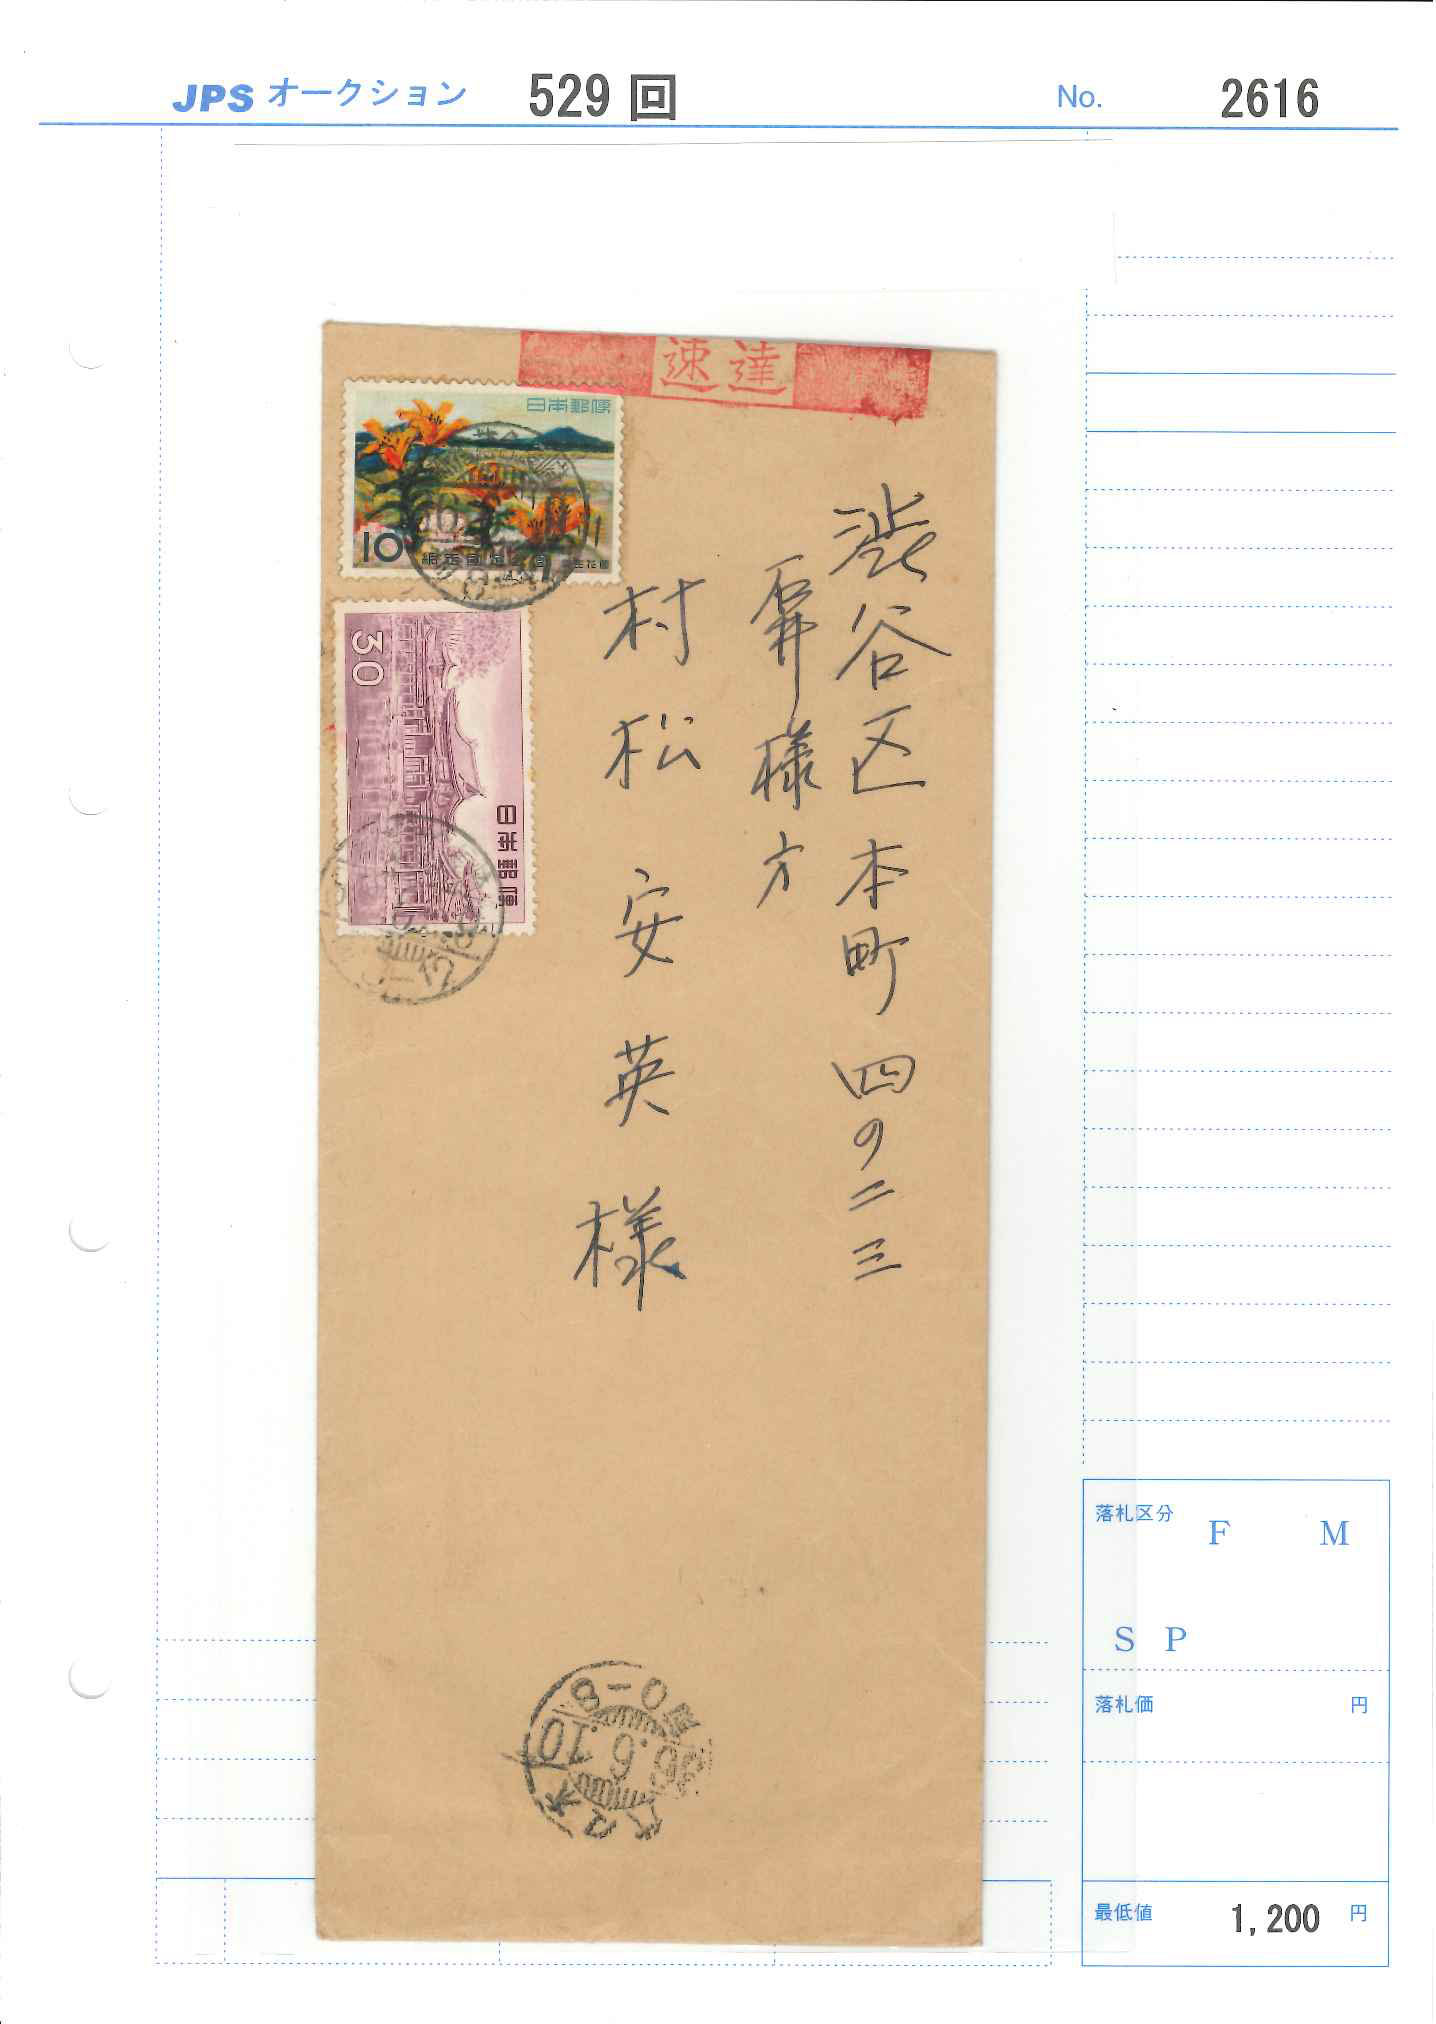 JPS オークション 529 回 No. 2616
速達
日本郵便
10 網走国定公園 原生花園
30
日本郵便
渋谷区本町四ノ二三
様方
村松安英様
前0-8
36.6.10
落札区分 F M
S P
落札価 円
最低値 1,200 円